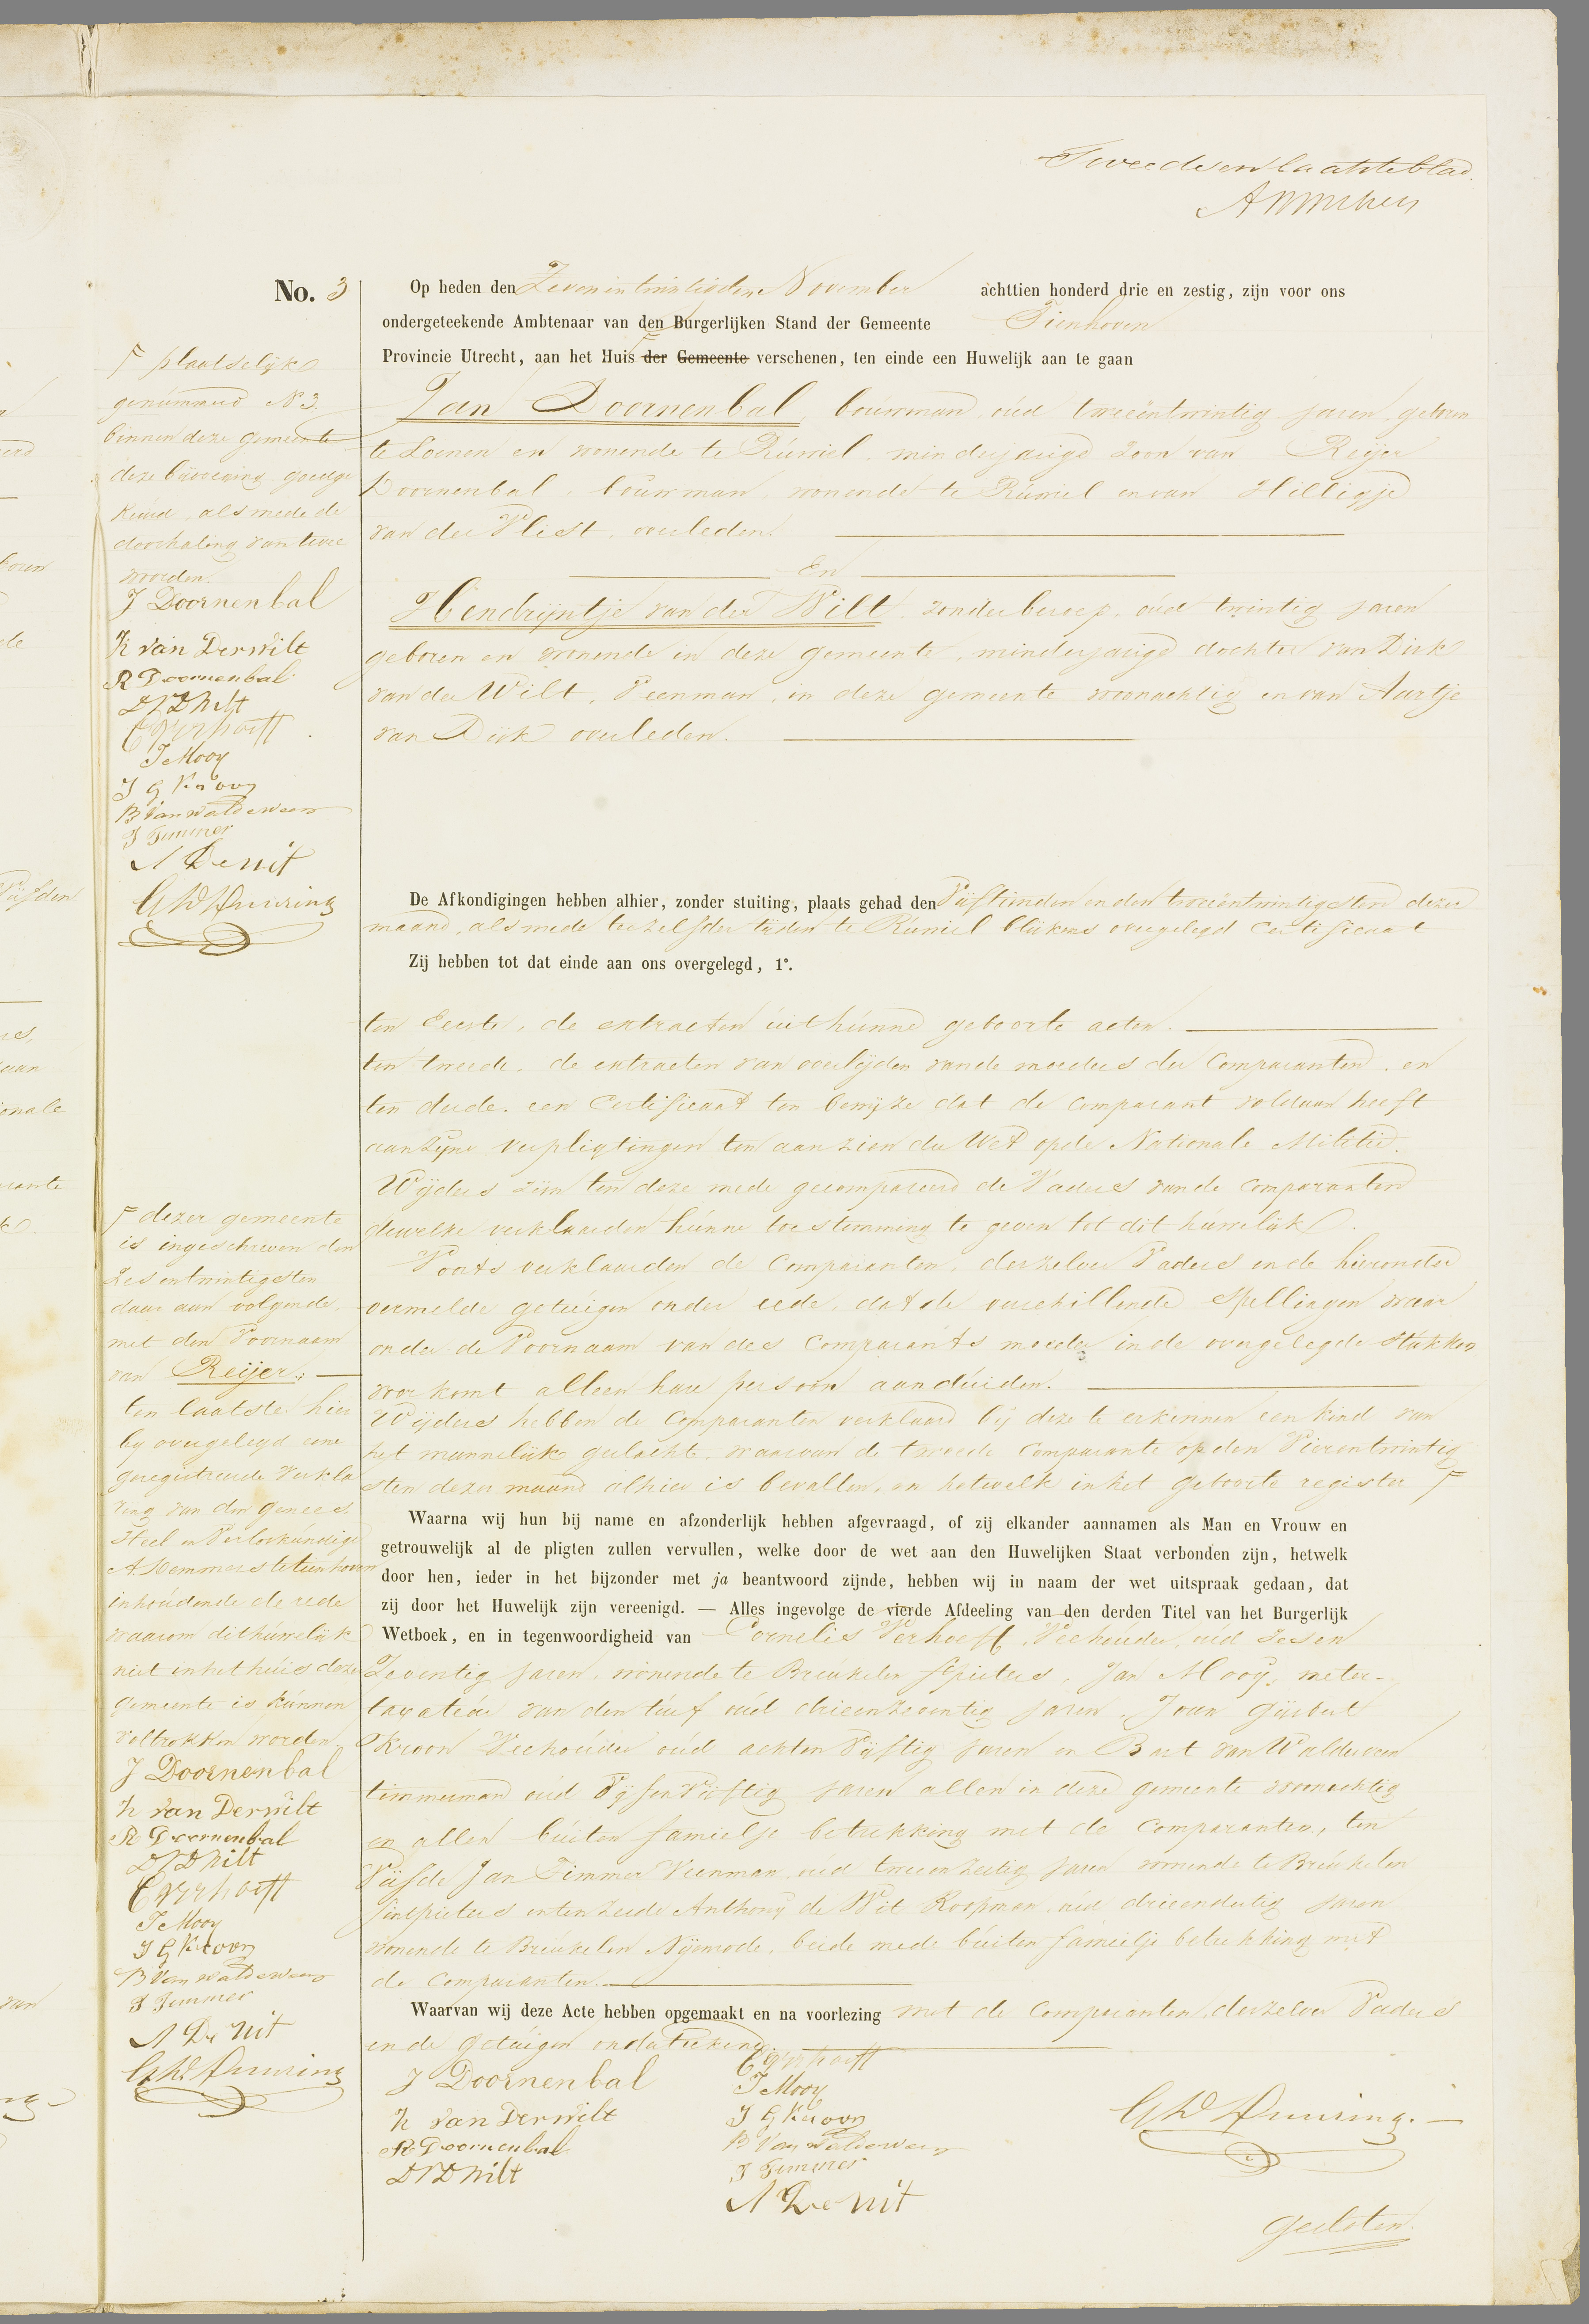 Tweede en laatste blad.
No. 3
Op heden den Zevenentwintigsten November achttien honderd drie en zestig, zijn voor ons
ondergeteekende Ambtenaar van den Burgerlijken Stand der Gemeente Tienhoven
Provincie Utrecht, aan het Huis der Gemeente verschenen, ten einde een Huwelijk aan te gaan
Jan Doornenbal, bouwman, oud tweeëntwintig jaren, geboren
te Loenen en wonende te Ruwiel, minderjarige zoon van Reijer
Doornenbal, bouwman, wonende te Ruwiel en van Hilligje
van der Vliet, overleden.
En
Hendrijntje van der Wilt, zonder beroep, oud twintig jaren
geboren en wonende in deze gemeente, minderjarige dochter van Dirk
van der Wilt, Veenman, in deze gemeente woonachtig en van Aartje
van Dijk overleden.
De Afkondigingen hebben alhier, zonder stuiting, plaats gehad den Vijftienden en den tweeëntwintigsten dezer
maand, alsmede terzelfder tijden te Ruwiel blijkens overgelegd Certificaat
Zij hebben tot dat einde aan ons overgelegd, 1°.
ten Eerste, de extracten uit hunne geboorte acten.
ten tweede, de extracten van overlijden van de moeders der Comparanten, en
ten derde, een Certificaat ten bewijze dat de comparant voldaan heeft
aan zijne verpligtingen ten aanzien der Wet op de Nationale Militie.
Wijders zijn ten deze mede gecompareerd de Vaders van de comparanten
dewelke verklaarden hunne toestemming te geven tot dit huwelijk.
Voorts verklaarden de Comparanten, derzelver Vaders en de hieronder
vermelde getuigen onder eede, dat de verschillende spellingen waar
onder de Voornaam van des Comparants moeder in de overgelegde stukken
voor komt alleen hare persoon aanduiden.
Wijders hebben de Comparanten verklaard bij deze te erkennen een kind van
het mannelijk geslacht, waarvan de tweede Comparante op den Vierentwintig
sten dezer maand alhier is bevallen, en hetwelk in het geboorte register F
Waarna wij hun bij name en afzonderlijk hebben afgevraagd, of zij elkander aannamen als Man en Vrouw en
getrouwelijk al de pligten zullen vervullen, welke door de wet aan den Huwelijken Staat verbonden zijn, hetwelk
door hen, ieder in het bijzonder met ja beantwoord zijnde, hebben wij in naam der wet uitspraak gedaan, dat
zij door het Huwelijk zijn vereenigd. — Alles ingevolge de vierde Afdeeling van den derden Titel van het Burgerlijk
Wetboek, en in tegenwoordigheid van Cornelis Verhoeff, Veehouder, oud zes en
Zeventig jaren, wonende te Breukelen St pieters, Jan Mooij, meter-
taxateur van den turf oud drieenzeventig jaren, Joan Gijsbert
Kroon Veehouder oud achten Vijftig jaren en Bart van Walderveen
timmerman oud Vijfenvijftig jaren allen in deze gemeente woonachtig
en allen buiten famielje betrekking met de Comparanten, ten
Vijfde Jan Timmer Veenman, oud tweeenzestig jaren wonende te Breukelen
sintpieters en ten zesde Anthonij de Wit Koopman, oud drieendertig jaren
wonende te Breukelen Nijenrode, beide mede buiten famielje betrekking met
de Comparanten.
Waarvan wij deze Acte hebben opgemaakt en na voorlezing met de Comparanten, derzelver Vaders
en de getuigen onderteekend.
J Doornenbal
H van Derwilt
R Doornenbal
D V D Wilt
C Verhoeff
J Mooy
J G Kroon
B Van walderveen
J Timmer
A De Wit
Gesloten.
F plaatselijk
genummerd N 3.
binnen deze gemeente
deze bijvoeging goedge
keurd, alsmede de
doorhaling van twee
woorden.
J Doornenbal
H van Derwilt
R Doornenbal
D V D Wilt
C Verhoeff
J Mooy
J G Kroon
B Van walderveen
J Timmer
A De Wit
F dezer gemeente
is ingeschreven den
Zesentwintigsten
daar aan volgende,
met den Voornaam
van Reijer;
ten laatste hier
bij overgelegd eene
geregistreerde verkla
ring van den genees,
Heel en Verloskundige
A Hemmes te tienhoven
inhoudende de rede
waarom dit huwelijk
niet in het huis dezer
Gemeente is kunnen
voltrokken worden.
J Doornenbal
H van Derwilt
R Doornenbal
D V D Wilt
C Verhoeff
J Mooy
J G Kroon
B Van walderveen
J Timmer
A De Wit